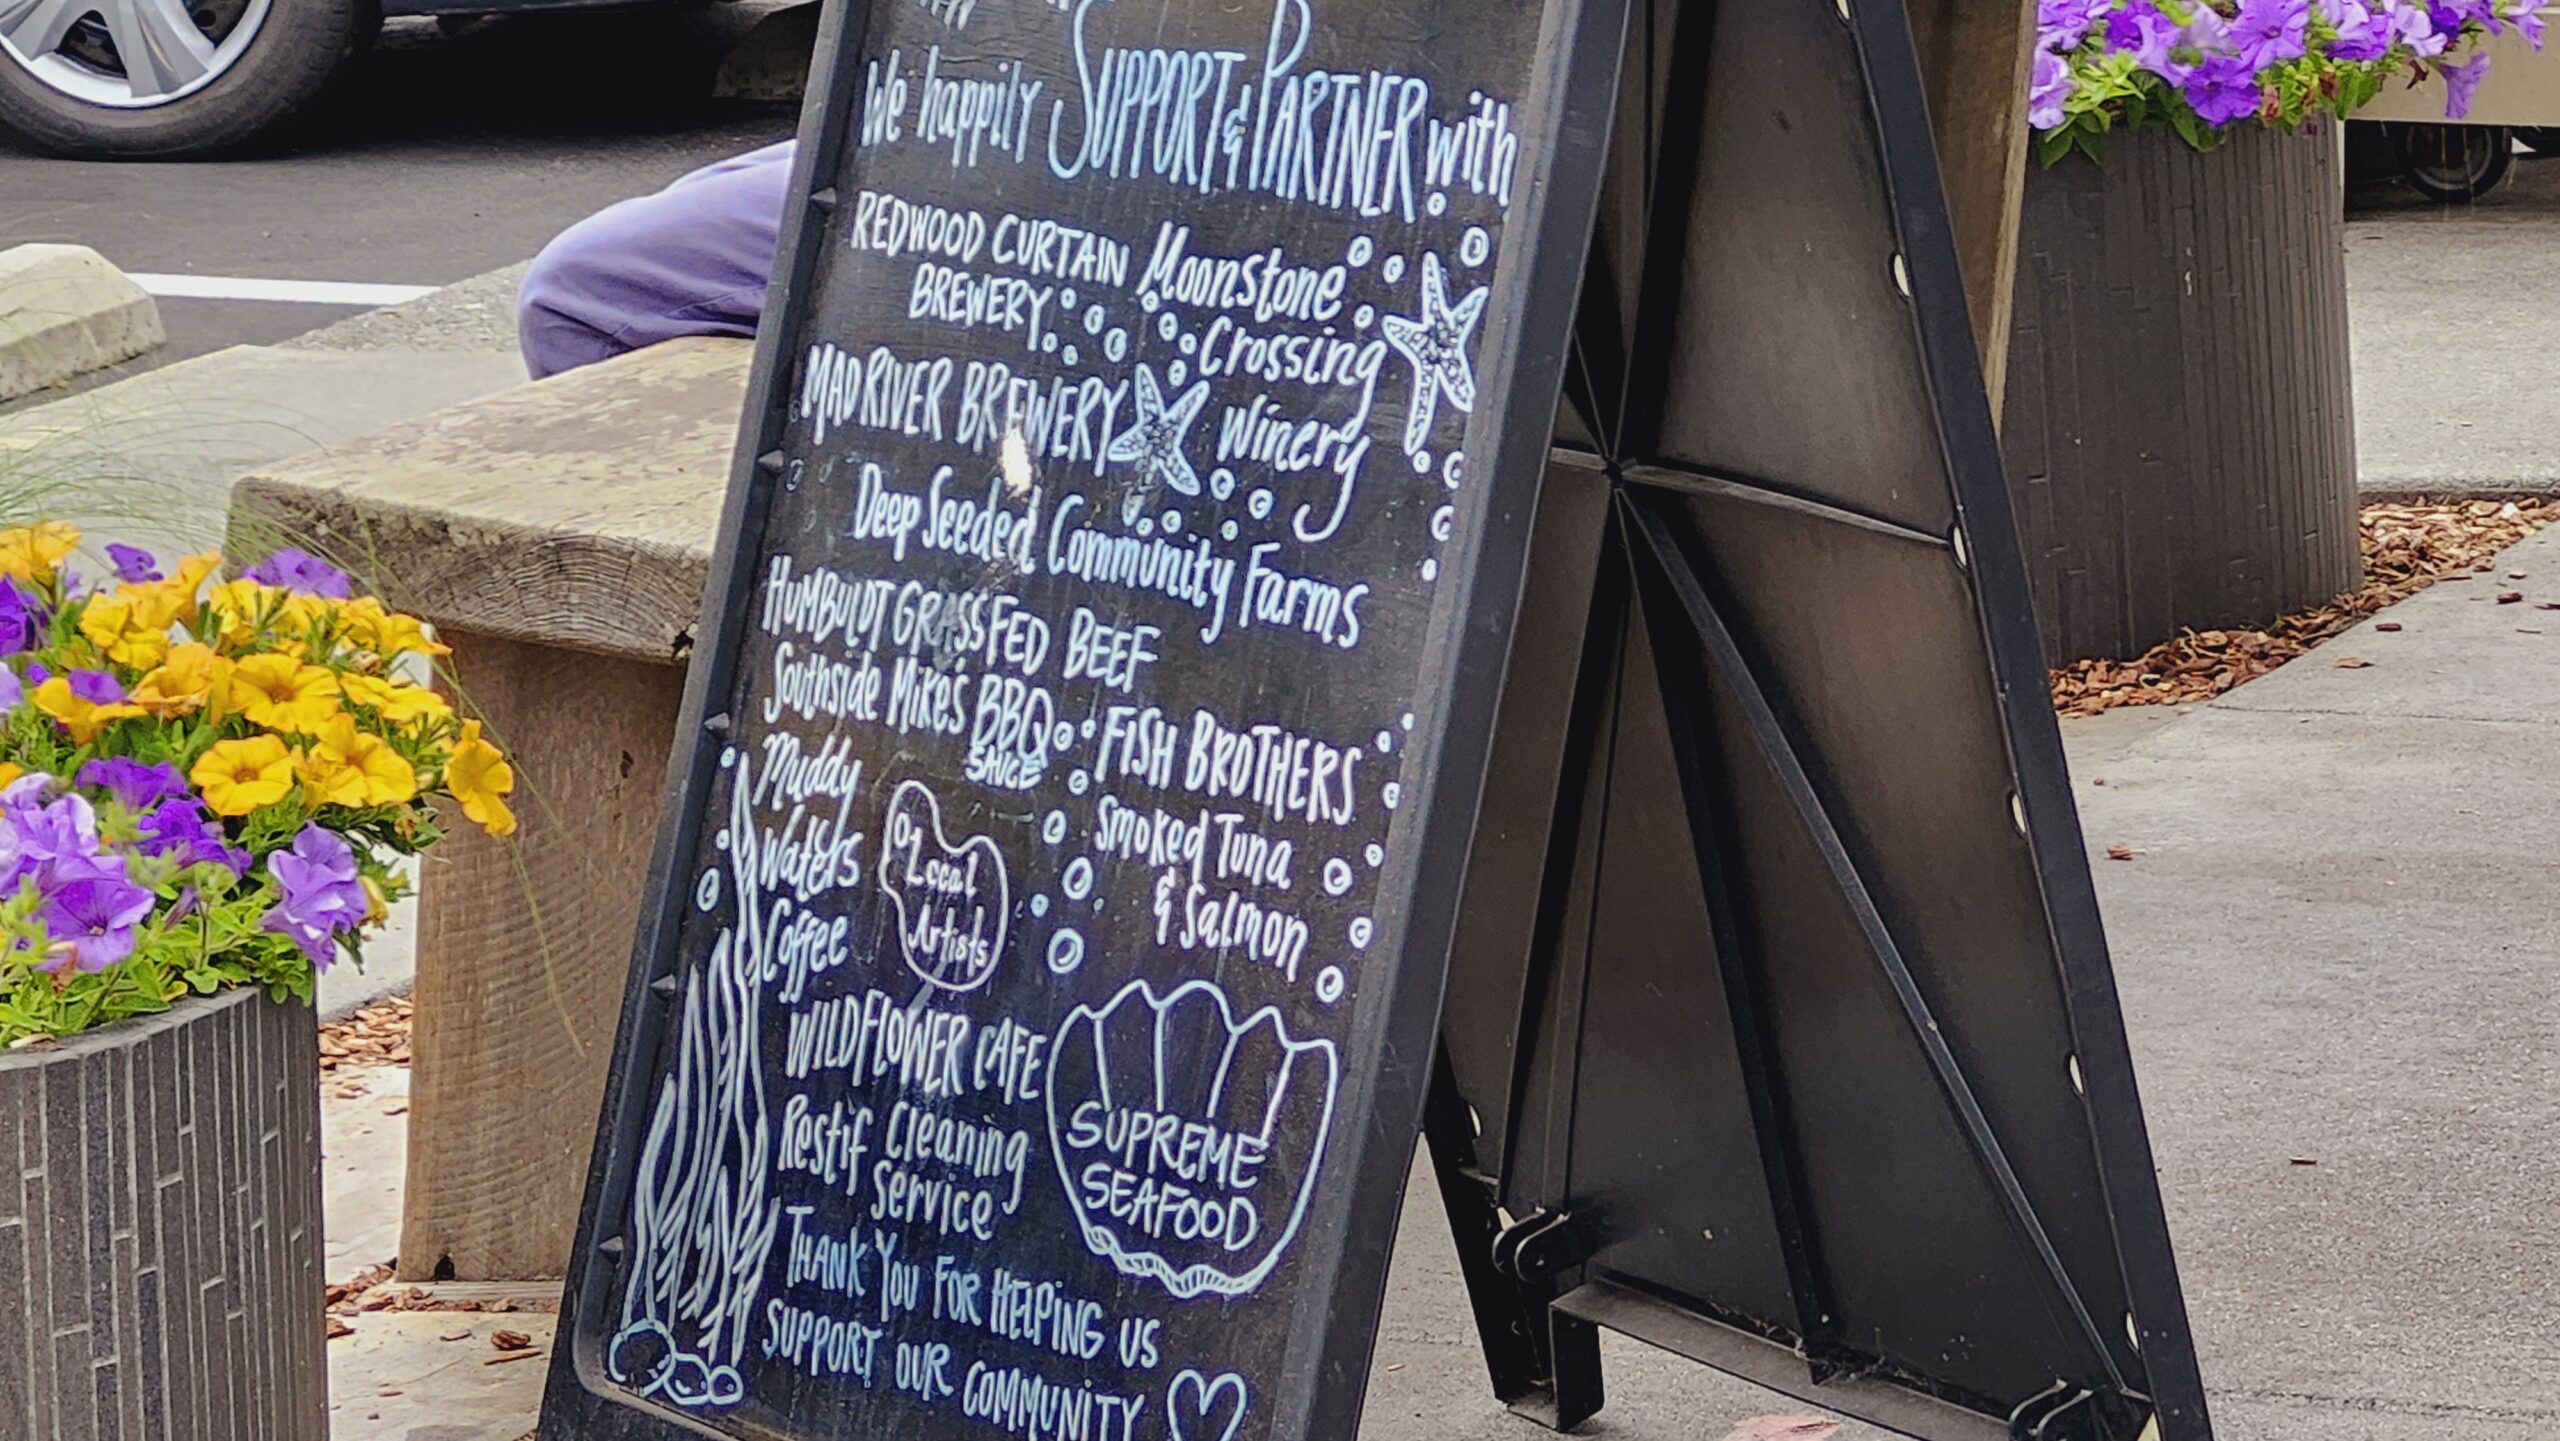 We happily SUPPORT & PARTNER with
REDWOOD CURTAIN
BREWERY
Moonstone
Crossing
Winery
MAD RIVER BREWERY
Deep Seeded Community Farms
HUMBOLDT GRASSFED BEEF
Southside Mike's BBQ
SAUCE
FISH BROTHERS
Smoked Tuna
& Salmon
Muddy
Waters
Coffee
Local
Artists
WILDFLOWER CAFE
Restif Cleaning
Service
SUPREME
SEAFOOD
THANK YOU FOR HELPING US
SUPPORT OUR COMMUNITY